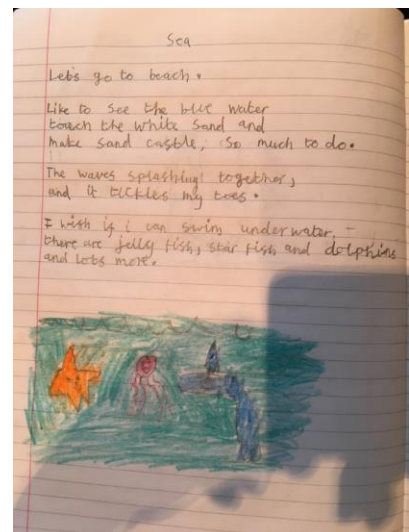 Sea
Let's go to beach.
Like to see the blue water
touch the white sand and
make sand castle, So much to do.
The waves splashing together,
and it tickles my toes.
I wish if i can swim under water, -
there are jelly fish, star fish and dolphins
and lots more.